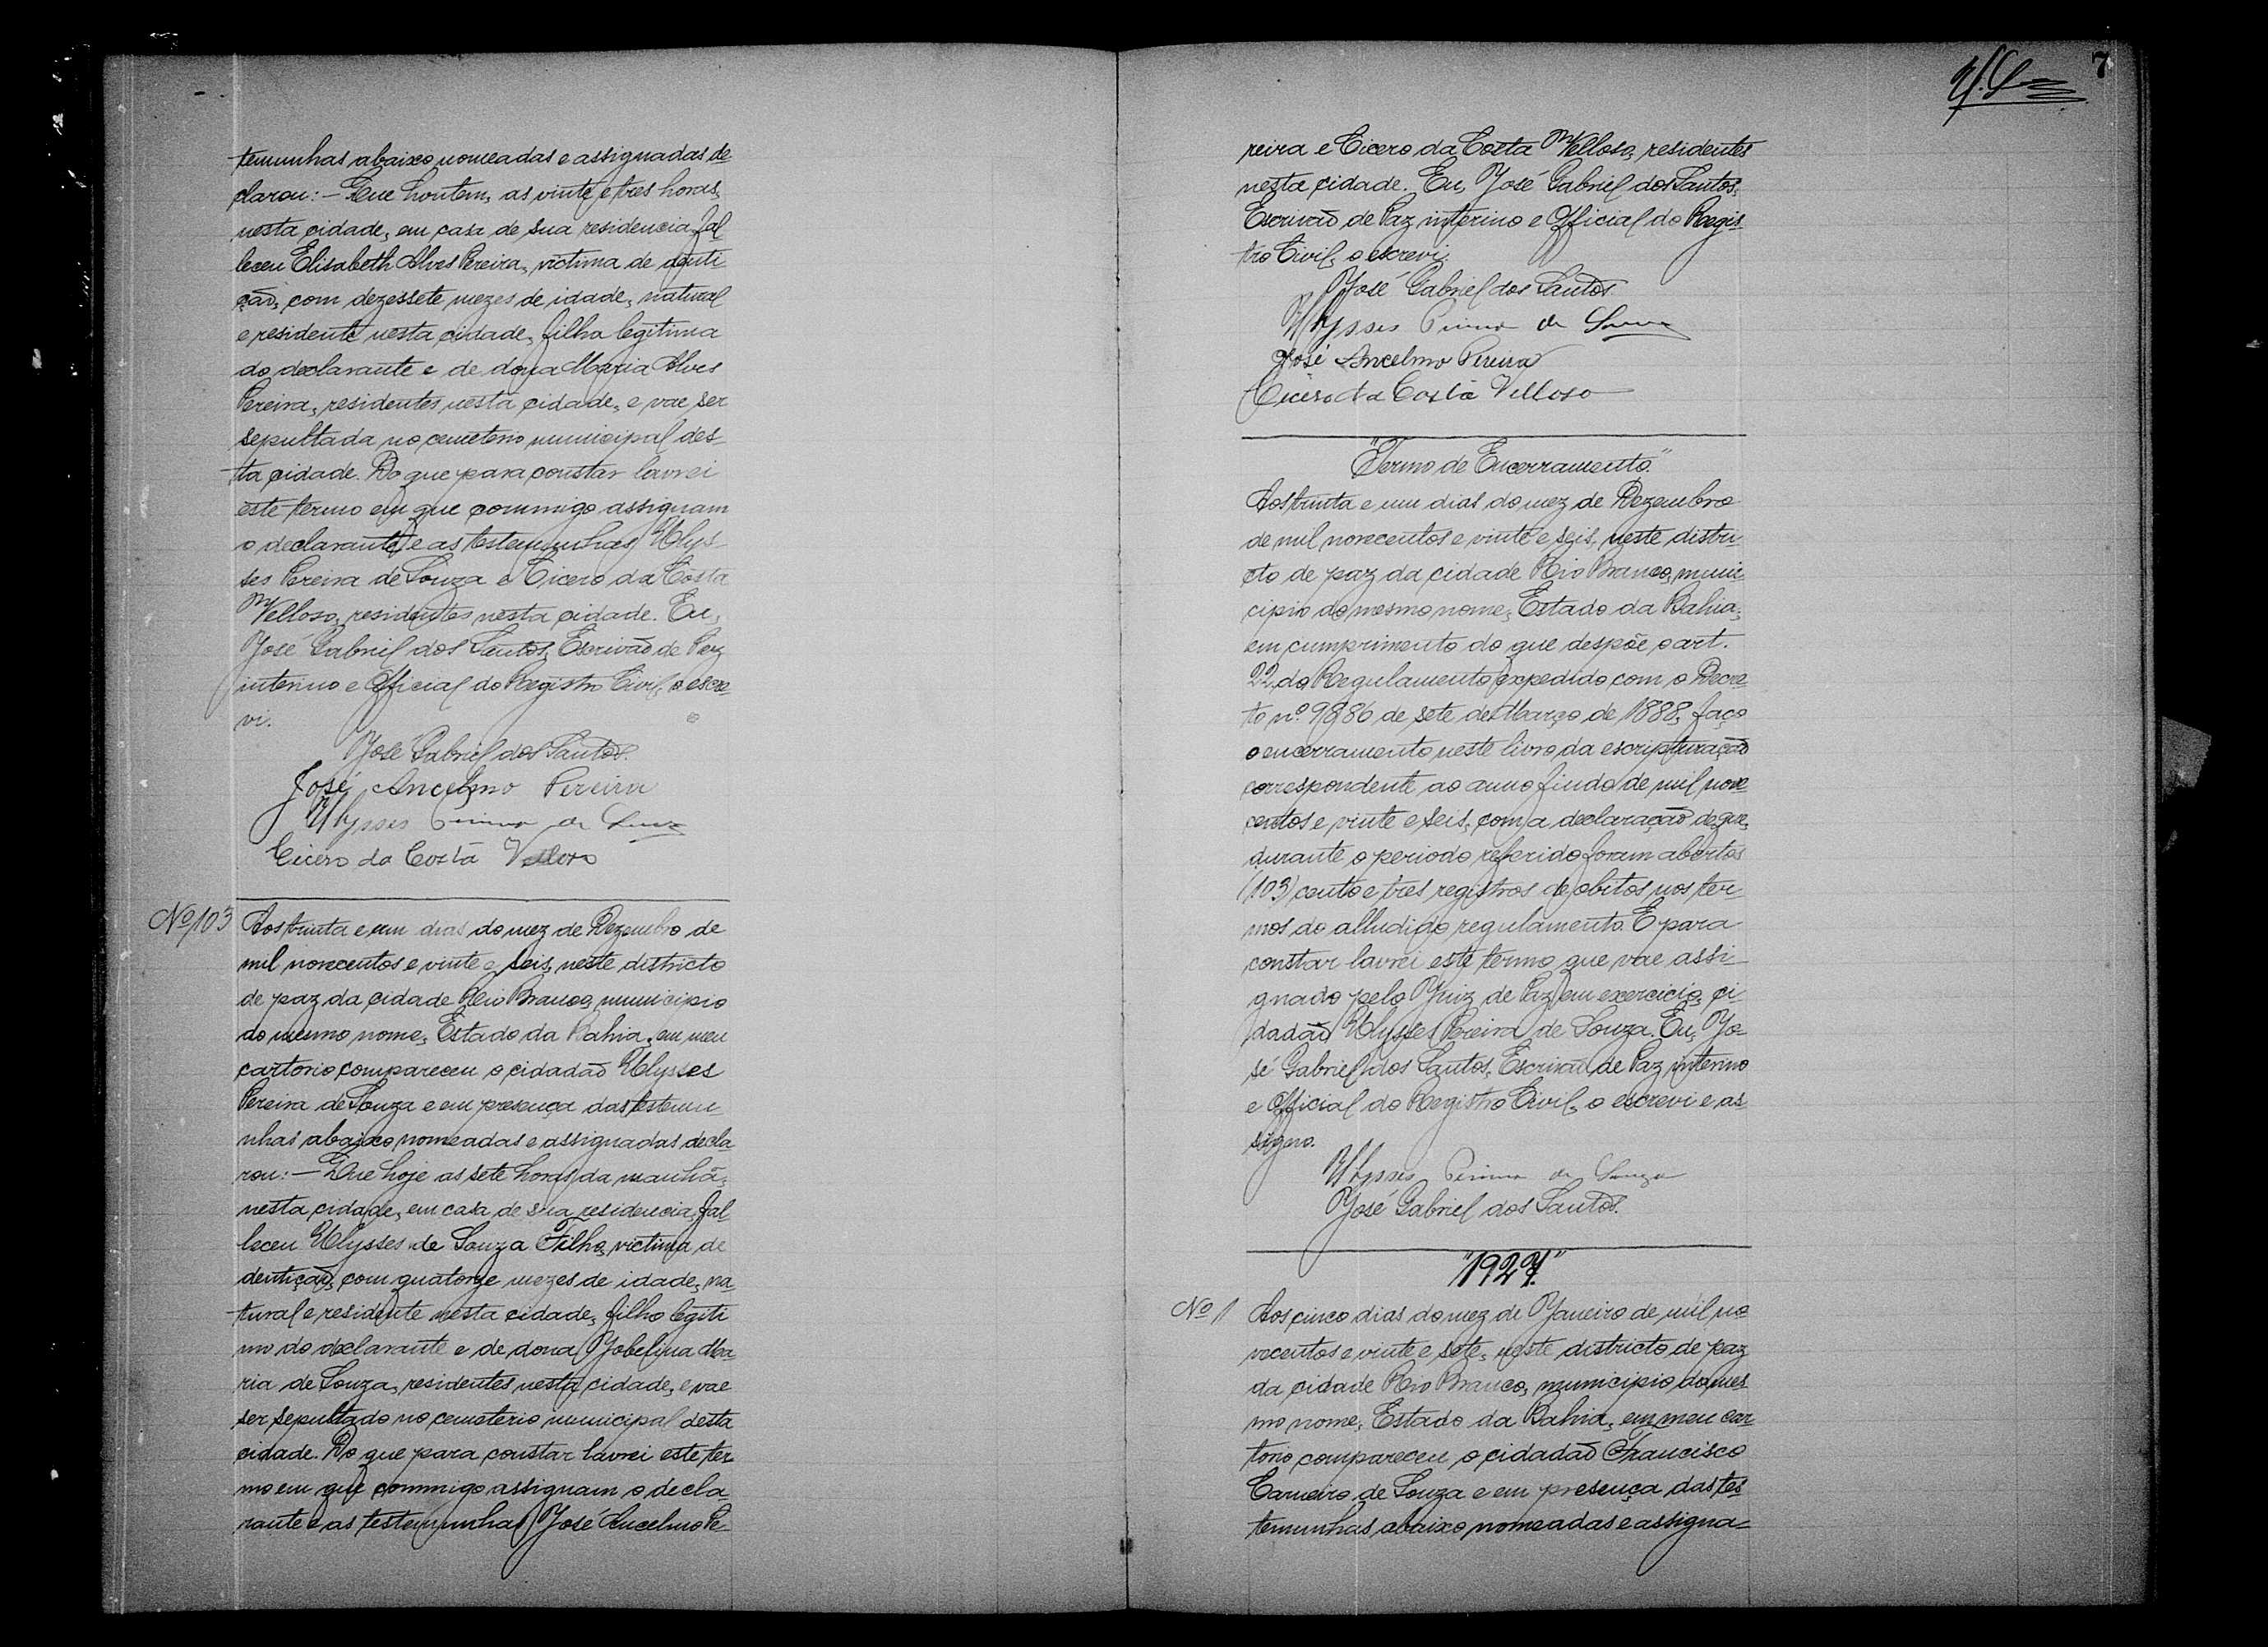 temunhas abaixo nomeadas e assignadas de
clarou: - Que hontem, as vinte e tres horas,
nesta cidade, em casa de sua residencia fal
leceu Elisabeth Alves Pereira, victima de denti
ção, com dezessete mezes de idade, natural
e residente nesta cidade, filha legitima
do declarante e de dona Maria Alves
Pereira, residentes nesta cidade, e vae ser
sepultada no cemeterio municipal des-
ta cidade. Do que para constar lavrei
este termo em que commigo assignam
o declarante e as testemunhas Ulys-
ses Pereira de Souza e Cicero da Costa
Velloso, residentes nesta cidade. Eu,
José Gabriel dos Santos, Escrivão de Paz
interino e Official do Registro Civil, o escre
vi.
José Gabriel dos Santos.
José Ancelmo Pereira
Ulysses Pereira de Souza
Cicero da Costa Velloso
Nº 103 Aos trinta e um dias do mez de Dezembro de
mil novecentos e vinte e seis, neste districto
de paz da cidade Rio Branco, municipio
do mesmo nome, Estado da Bahia, em meu
cartorio compareceu o cidadão Ulysses
Pereira de Souza e em presença das testemu-
nhas abaixo nomeadas e assignadas decla-
rou: - Que hoje as sete horas da manhã,
nesta cidade, em casa de sua residencia fal-
leceu Ulysses de Souza Filho, victima de
dentição, com quatorze mezes de idade, na-
tural e residente nesta cidade, filho legiti
mo do declarante e de dona Jobelina Ma-
ria de Souza, residentes nesta cidade, e vae
ser sepultado no cemeterio municipal desta
cidade. Do que para constar lavrei este ter
mo em que commigo assignam o decla-
rante e as testemunhas José Ancelmo Pe-
7
reira e Cicero da Costa Velloso, residentes
nesta cidade. Eu, José Gabriel dos Santos,
Escrivão de Paz interino e Official do Regis
tro Civil, o escrevi.
José Gabriel dos Santos.
Ulysses Pereira de Souza
José Ancelmo Pereira
Cicero da Costa Velloso
"Termo de Encerramento."
Aos trinta e um dias do mez de Dezembro
de mil novecentos e vinte e seis, neste distri-
cto de paz da cidade Rio Branco, muni
cipio do mesmo nome, Estado da Bahia,
em cumprimento do que despõe o art.
22, do Regulamento expedido com o Decre-
to nº 9886 de sete de Março de 1888, faço
o encerramento neste livro da escripturação
correspondente ao anno findo de mil nove
centos e vinte e seis, com a declaração de que,
durante o periodo referido foram abertos
(103) cento e tres registros de obitos nos ter-
mos do alludido regulamento. E para
constar lavrei este termo que vae assi-
gnado pelo Juiz de Paz em exercicio, ci-
dadão Ulysses Pereira de Souza. Eu, Jo-
sé Gabriel dos Santos, Escrivão de Paz interino
e Official do Registro Civil, o escrevi e as
signo.
Ulysses Pereira de Souza
José Gabriel dos Santos.
"1927."
Nº 1 Aos cinco dias do mez de Janeiro de mil no-
vecentos e vinte e sete, neste districto de paz
da cidade Rio Branco, municipio do mes-
mo nome, Estado da Bahia, em meu car-
torio compareceu o cidadão Francisco
Carneiro de Souza e em presença das tes-
temunhas abaixo nomeadas e assigna-